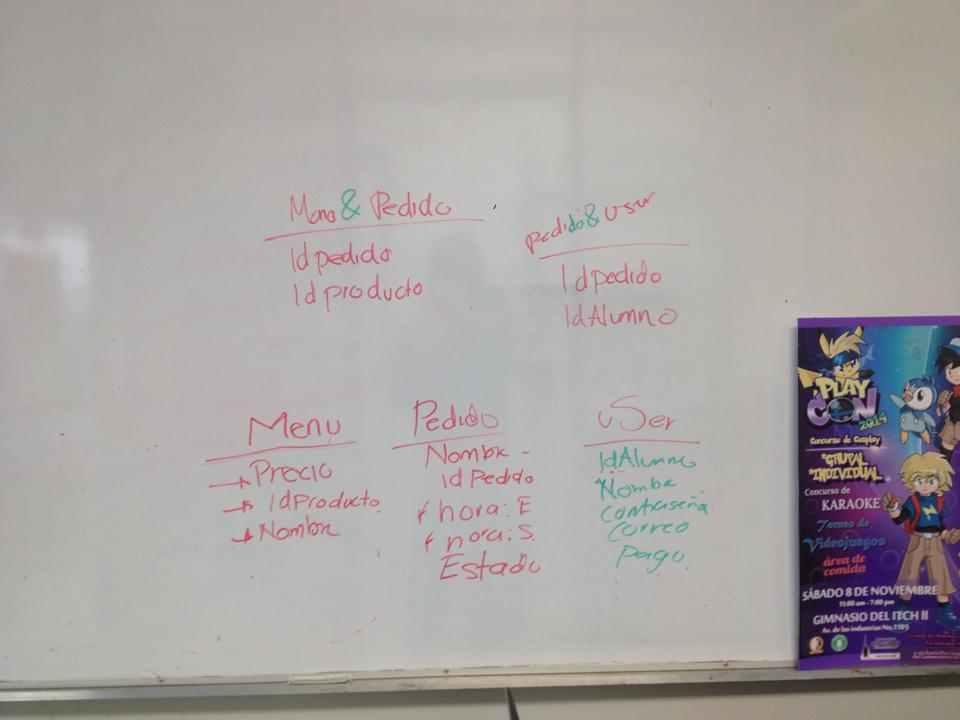 Menu & Pedido
Id pedido
Id producto
pedido & User
Id pedido
Id Alumno
Menu
Precio
Id Producto
Nombre
Pedido
Nombre
Id Pedido
hora: E
hora: S
Estado
USer
Id Alumno
Nombre
contraseña
correo
pago
PLAY
CON
2014
Concurso de Cosplay
*GRUPAL
*INDIVIDUAL
Concurso de
KARAOKE
Torneo de
Videojuegos
área de
comida
SÁBADO 8 DE NOVIEMBRE
11:00 am - 7:00 pm
GIMNASIO DEL ITCH II
Av. de las industrias No.